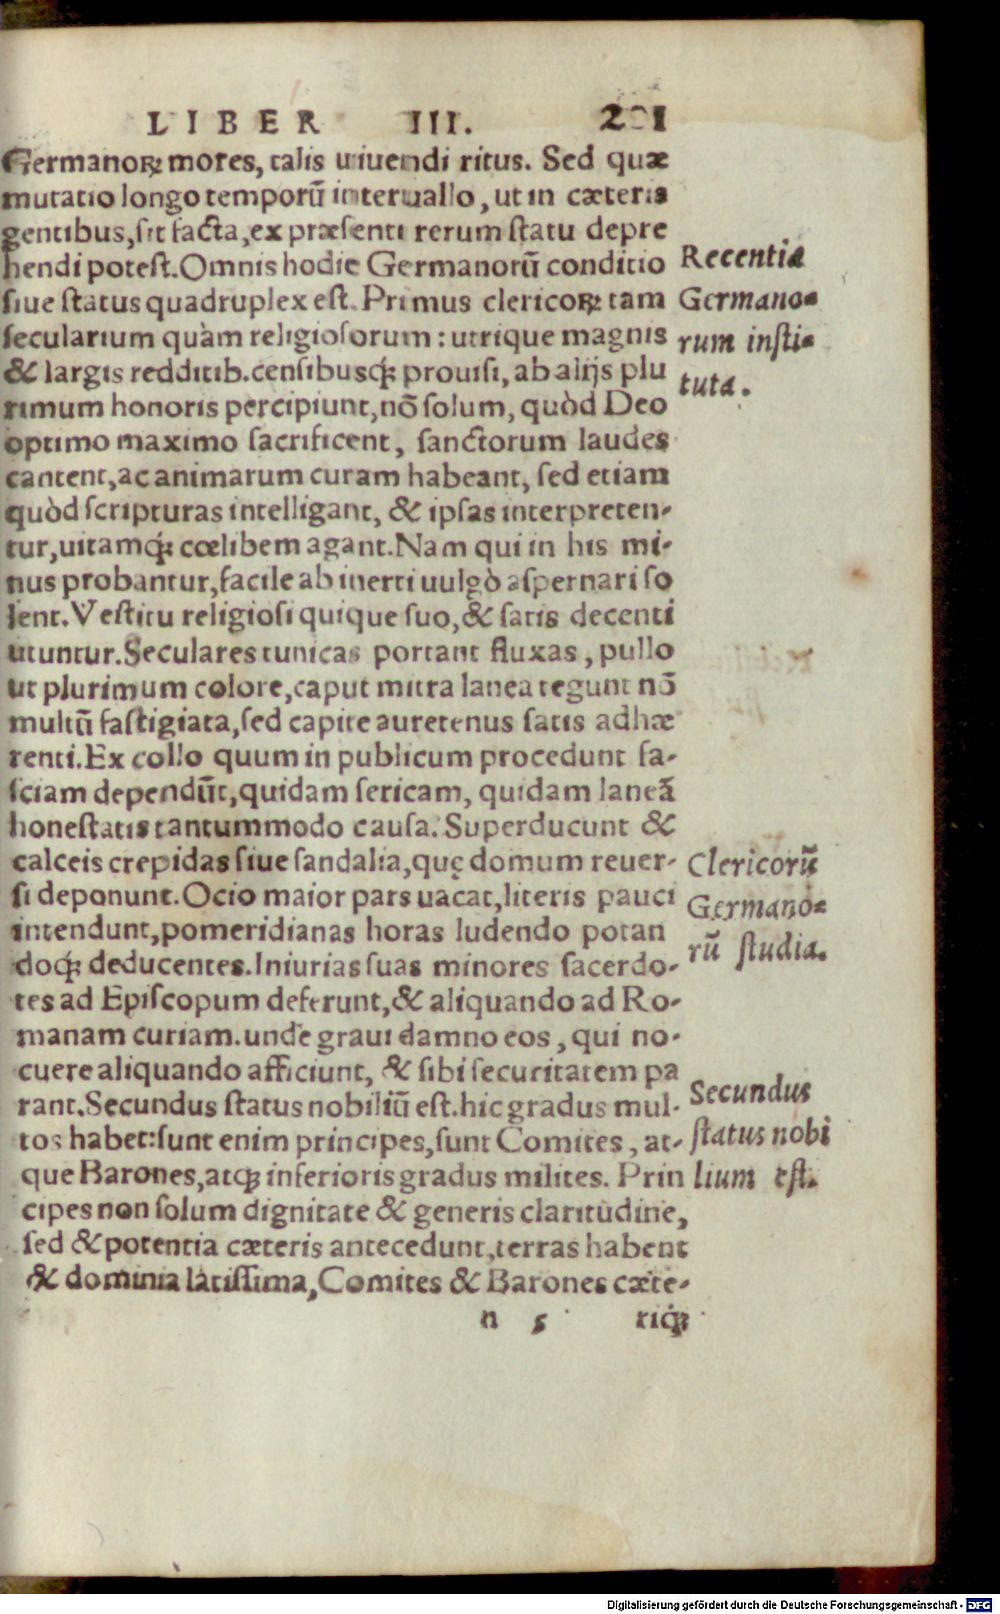 LIBER III. 201
Germanoꝝ mores, talis uiuendi ritus. Sed quæ
mutatio longo temporũ interuallo, ut in cæteris
gentibus, sit facta, ex præsenti rerum statu depre
hendi potest. Omnis hodie Germanorũ conditio
siue status quadruplex est. Primus clericoꝝ tam
secularium quàm religiosorum: utrique magnis
& largis redditib. censibusq́ꝫ prouisi, ab alijs plu
rimum honoris percipiunt, nõ solum, quòd Deo
optimo maximo sacrificent, sanctorum laudes
cantent, ac animarum curam habeant, sed etiam
quòd scripturas intelligant, & ipsas interpreten-
tur, uitamq́ꝫ cœlibem agant. Nam qui in his mi-
nus probantur, facile ab inerti uulgò aspernari so
lent. Vestitu religiosi quique suo, & satis decenti
utuntur. Seculares tunicas portant fluxas, pullo
ut plurimum colore, caput mitra lanea tegunt nõ
multũ fastigiata, sed capite auretenus satis adhæ
renti. Ex collo quum in publicum procedunt fa-
sciam dependũt, quidam sericam, quidam laneã
honestatis tantummodo causa. Superducunt &
calceis crepidas siue sandalia, quę domum reuer-
si deponunt. Ocio maior pars uacat, literis pauci
intendunt, pomeridianas horas ludendo potan
doq́ꝫ deducentes. Iniurias suas minores sacerdo-
tes ad Episcopum deferunt, & aliquando ad Ro-
manam curiam. unde graui damno eos, qui no-
cuere aliquando afficiunt, & sibi securitatem pa
rant. Secundus status nobiliũ est. hic gradus mul-
tos habet: sunt enim principes, sunt Comites, at-
que Barones, atqꝫ inferioris gradus milites. Prin
cipes non solum dignitate & generis claritudine,
sed & potentia cæteris antecedunt, terras habent
& dominia latissima, Comites & Barones cæte-
n 5 riq́ꝫ
Recentia
Germano-
rum insti-
tuta.
Clericorũ
Germano-
rũ studia.
Secundus
status nobi
lium est.
Digitalisierung gefördert durch die Deutsche Forschungsgemeinschaft - DFG